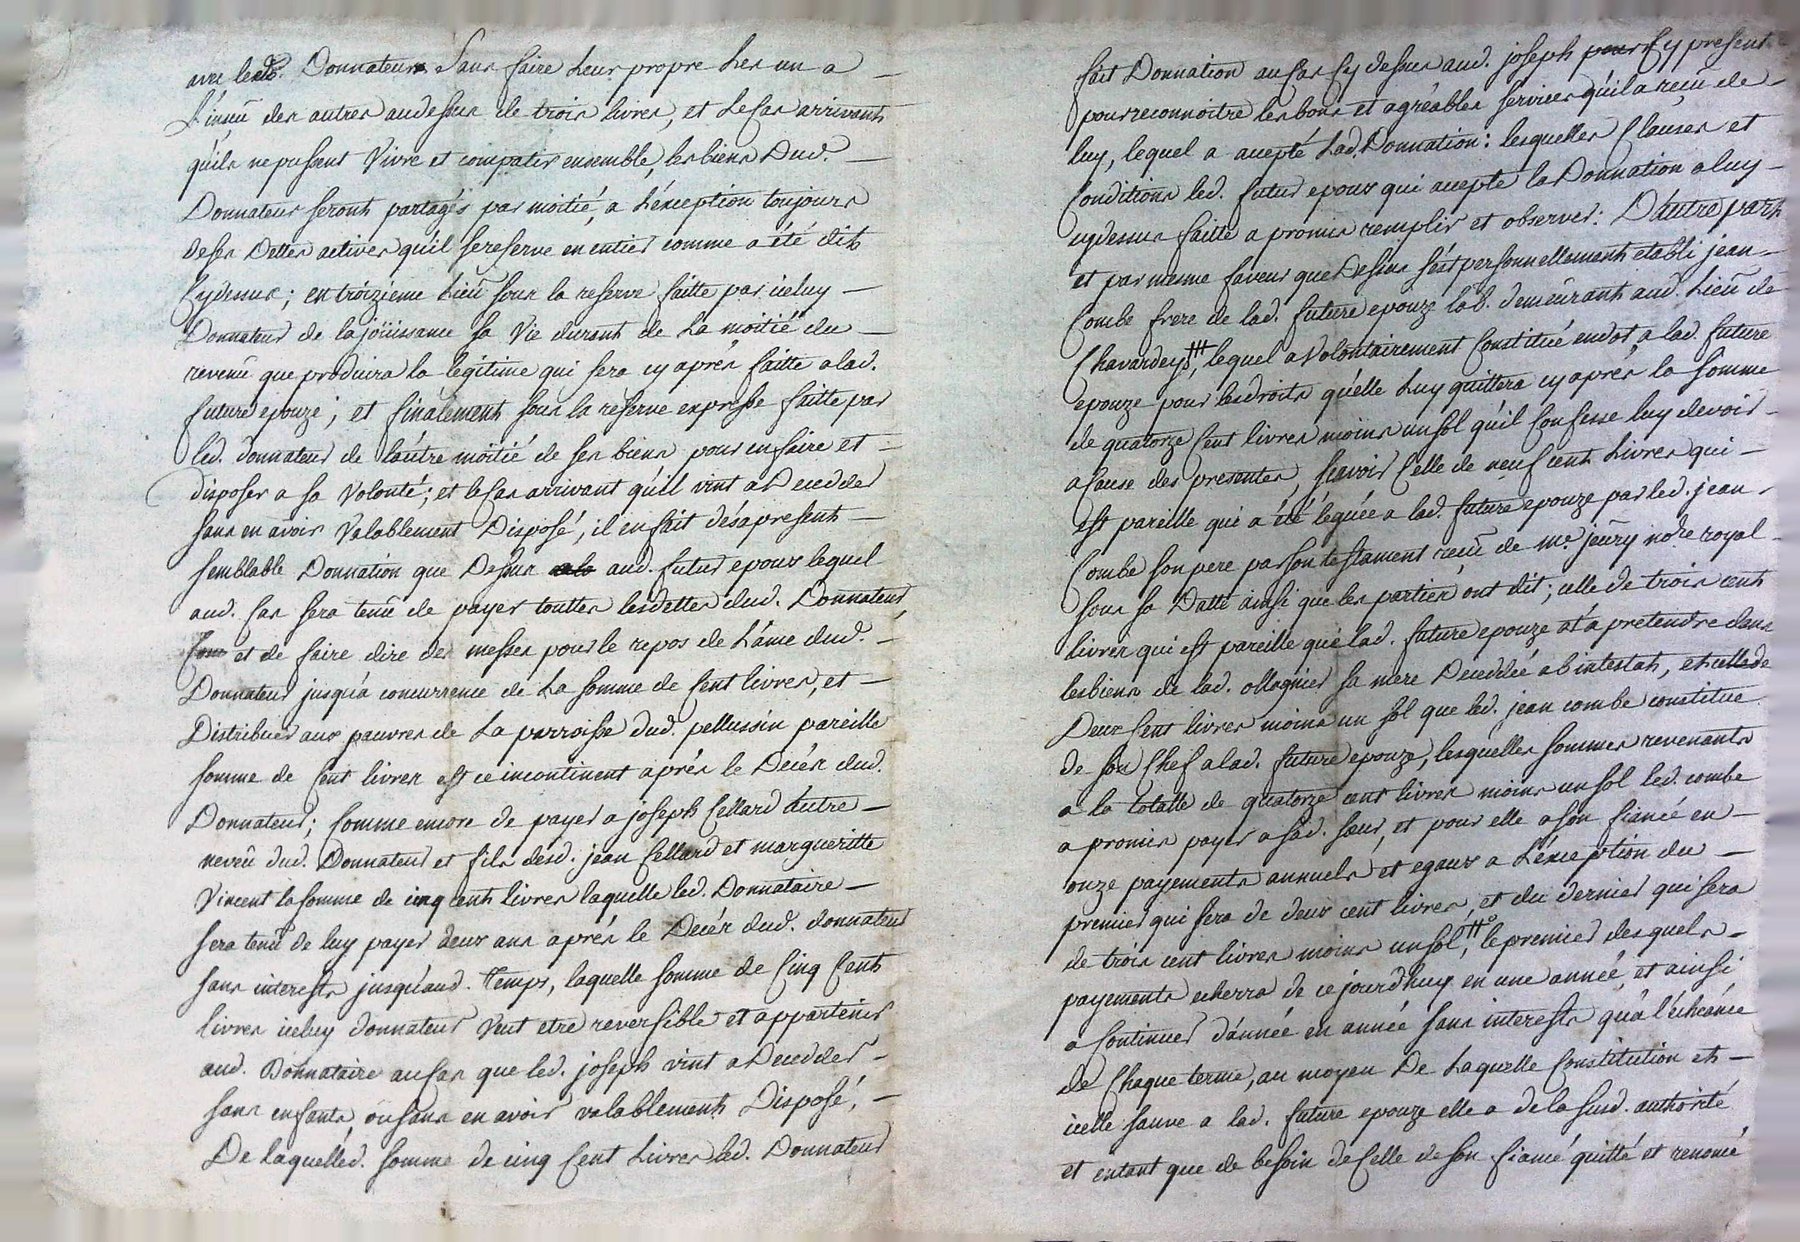 avec led. Donnateur Sans faire Leur propre Les un a
L'inseu des autres audessus de trois livres, et Le Cas arrivant
qu'ils ne pussent Vivre et compatir ensemble, les biens Dud.
Donnateur seront partagés par moitié, a L'éxception toujours
de ses Dettes actives qu'il se reserve en entier comme a été dit
Cydessus; en troizieme Lieu sous la reserve faitte par iceluy
Donnateur de la joüissance sa Vie durant de La moitié du
revenu que produira la légitime qui sera cy aprés faitte a lad.
future epouze; et finalement sous la reserve expresse faitte par
led. donnateur de l'autre moitié de ses biens pour en faire et
disposer a sa Volonté; et le cas arrivant qu'il vint a Decedder
sans en avoir Valablement Disposé, il en fait dés a present
semblable Donnation que Dessus aud. futur epoux lequel
aud. Cas sera tenu de payer touttes les dettes dud. Donnateur,
et de faire dire des messes pour le repos de L'ame dud.
Donnateur jusqu'a concurrence de La somme de Cent livres, et
Distribuer aux pauvres de La parroisse dud. pellussin pareille
somme de Cent livres et ce incontinent aprés le Decés dud.
Donnateur; Comme encore de payer a joseph Cellard autre
neveu dud. Donnateur et fils desd. jean Cellard et margueritte
Vincent la somme de cinq cents livres laquelle led. Donnataire
sera tenu de luy payer deux ans aprés le Decés dud. donnateur
sans interests jusqu'aud. temps, laquelle somme de Cinq Cents
livres iceluy donnateur Veut etre reversible et appartenir
aud. Donnataire au Cas que led. joseph vint a Decedder
sans enfants, ou sans en avoir valablement Disposé,
De laquelled. somme de cinq Cent Livres led. Donnateur
fait Donnation au Cas Cy dessus aud. joseph Cy present
pour reconnoitre les bons et agréables services qu'il a reçu de
luy, lequel a accepté Lad. Donnation: lesquelles Clauses et
Conditions led. futur epoux qui accepte la Donnation a luy
cydessus faitte a promis remplir et observer: D'autre part
et par meme faveur que Dessus s'est personnellement etabli jean
Combe frere de lad. future epouze lab. demeurant aud. Lieu de
Chavardeys, lequel a Volontairement Constitué en dot a lad. future
epouze pour les droits qu'elle Luy quittera cy aprés la somme
de quatorze Cent livres moins un sol qu'il Confesse luy devoir
a Cause des presentes, sçavoir Celle de neuf cent Livres qui
est pareille qui a été léguée a lad. future epouze par led. jean
Combe son pere par son testament reçu de me. jeury nore royal
sous sa Datte ainsi que les parties ont dit; celle de trois cent
livres qui est pareille que lad. future epouze a a pretendre dans
les biens de lad. ollagnier sa mere Deceddée ab intestat, et celle de
Deux Cent livres moins un sol que led. jean combe constitue
de son Chef a lad. future epouze, lesquelles sommes revenants
a la totalle de quatorze cent livres moins un sol led. combe
a promis payer a sad. sœur, et pour elle a son fiancé en
onze payements annuels et egaux a L'éxception du
premier qui sera de deux cent livres, et du dernier qui sera
de trois cent livres moins un sol, le premier desquels
payements echerra de ce jourd'huy en une année, et ainsi
a Continuer d'année en année sans interests qu'a l'échéance
de Chaque terme, au moyen De Laquelle Constitution et
icelle sauve a lad. future epouze elle a de la susd. authorité
et entant que de besoin de Celle de son fiancé quitté et renoncé